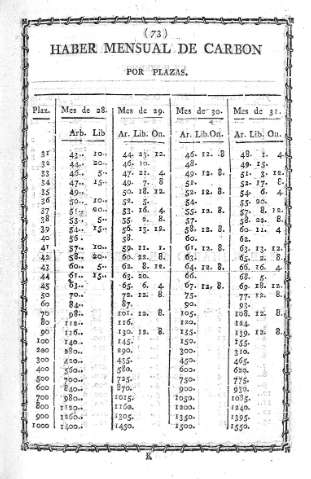 (73)
HABER MENSUAL DE CARBON
POR PLAZAS.
Plaz. Mes de 28. Mes de 29. Mes de 30. Mes de 31.
Arb. Lib Ar. Lib. On. Ar. Lib. On. Ar. Lib. On.
31 43.. 10.. 44. 23. 12. 46. 12. 8 48. 1. 4.
32 44.. 20.. 46. 10. 48. 49. 15.
33 46.. 5.. 47. 21. 4 49. 12. 8 51. 3. 12.
34 47.. 15.. 49. 7. 8 51. 52. 17. 8
35 49.. 50. 18. 12 52. 12. 8 54. 6. 4
36 50.. 10.. 52. 5. 54. 55. 20.
37 51.. 20.. 53. 16. 4 55. 12. 8 57. 8. 12.
38 53.. 5.. 55. 2. 8. 57. 58. 22. 8.
39 54.. 15.. 56. 13. 12. 58. 12. 8 60. 11. 4
40 56.. 58. 60. 62.
41 57.. 10.. 59. 11. 1. 61. 12. 8 63. 13. 12.
42 58.. 20.. 60. 22. 8. 63. 65. 2. 8.
43 60.. 5.. 62. 8. 12. 64. 12. 8 66. 16. 4
44 61.. 15.. 63. 20. 66. 68. 5.
45 63.. 65. 6. 4 67. 12. 8 69. 18. 12.
50 70.. 72. 12. 8 75. 77. 12. 8
60 84.. 87. 90. 93.
70 98.. 101. 12. 8. 105. 108. 12. 8.
80 112.. 116. 120. 124.
90 126.. 130. 12. 8. 135. 139. 12. 8.
100 140.. 145. 150. 155.
200 280.. 290. 300. 310.
300 420.. 435. 450. 465.
400 560.. 580. 600. 620.
500 700.. 725. 750. 775.
600 840.. 870. 900. 930.
700 980.. 1015. 1050. 1085.
800 1120.. 1160. 1200. 1240.
900 1260.. 1305. 1350. 1395.
1000 1400.. 1450. 1500. 1550.
K